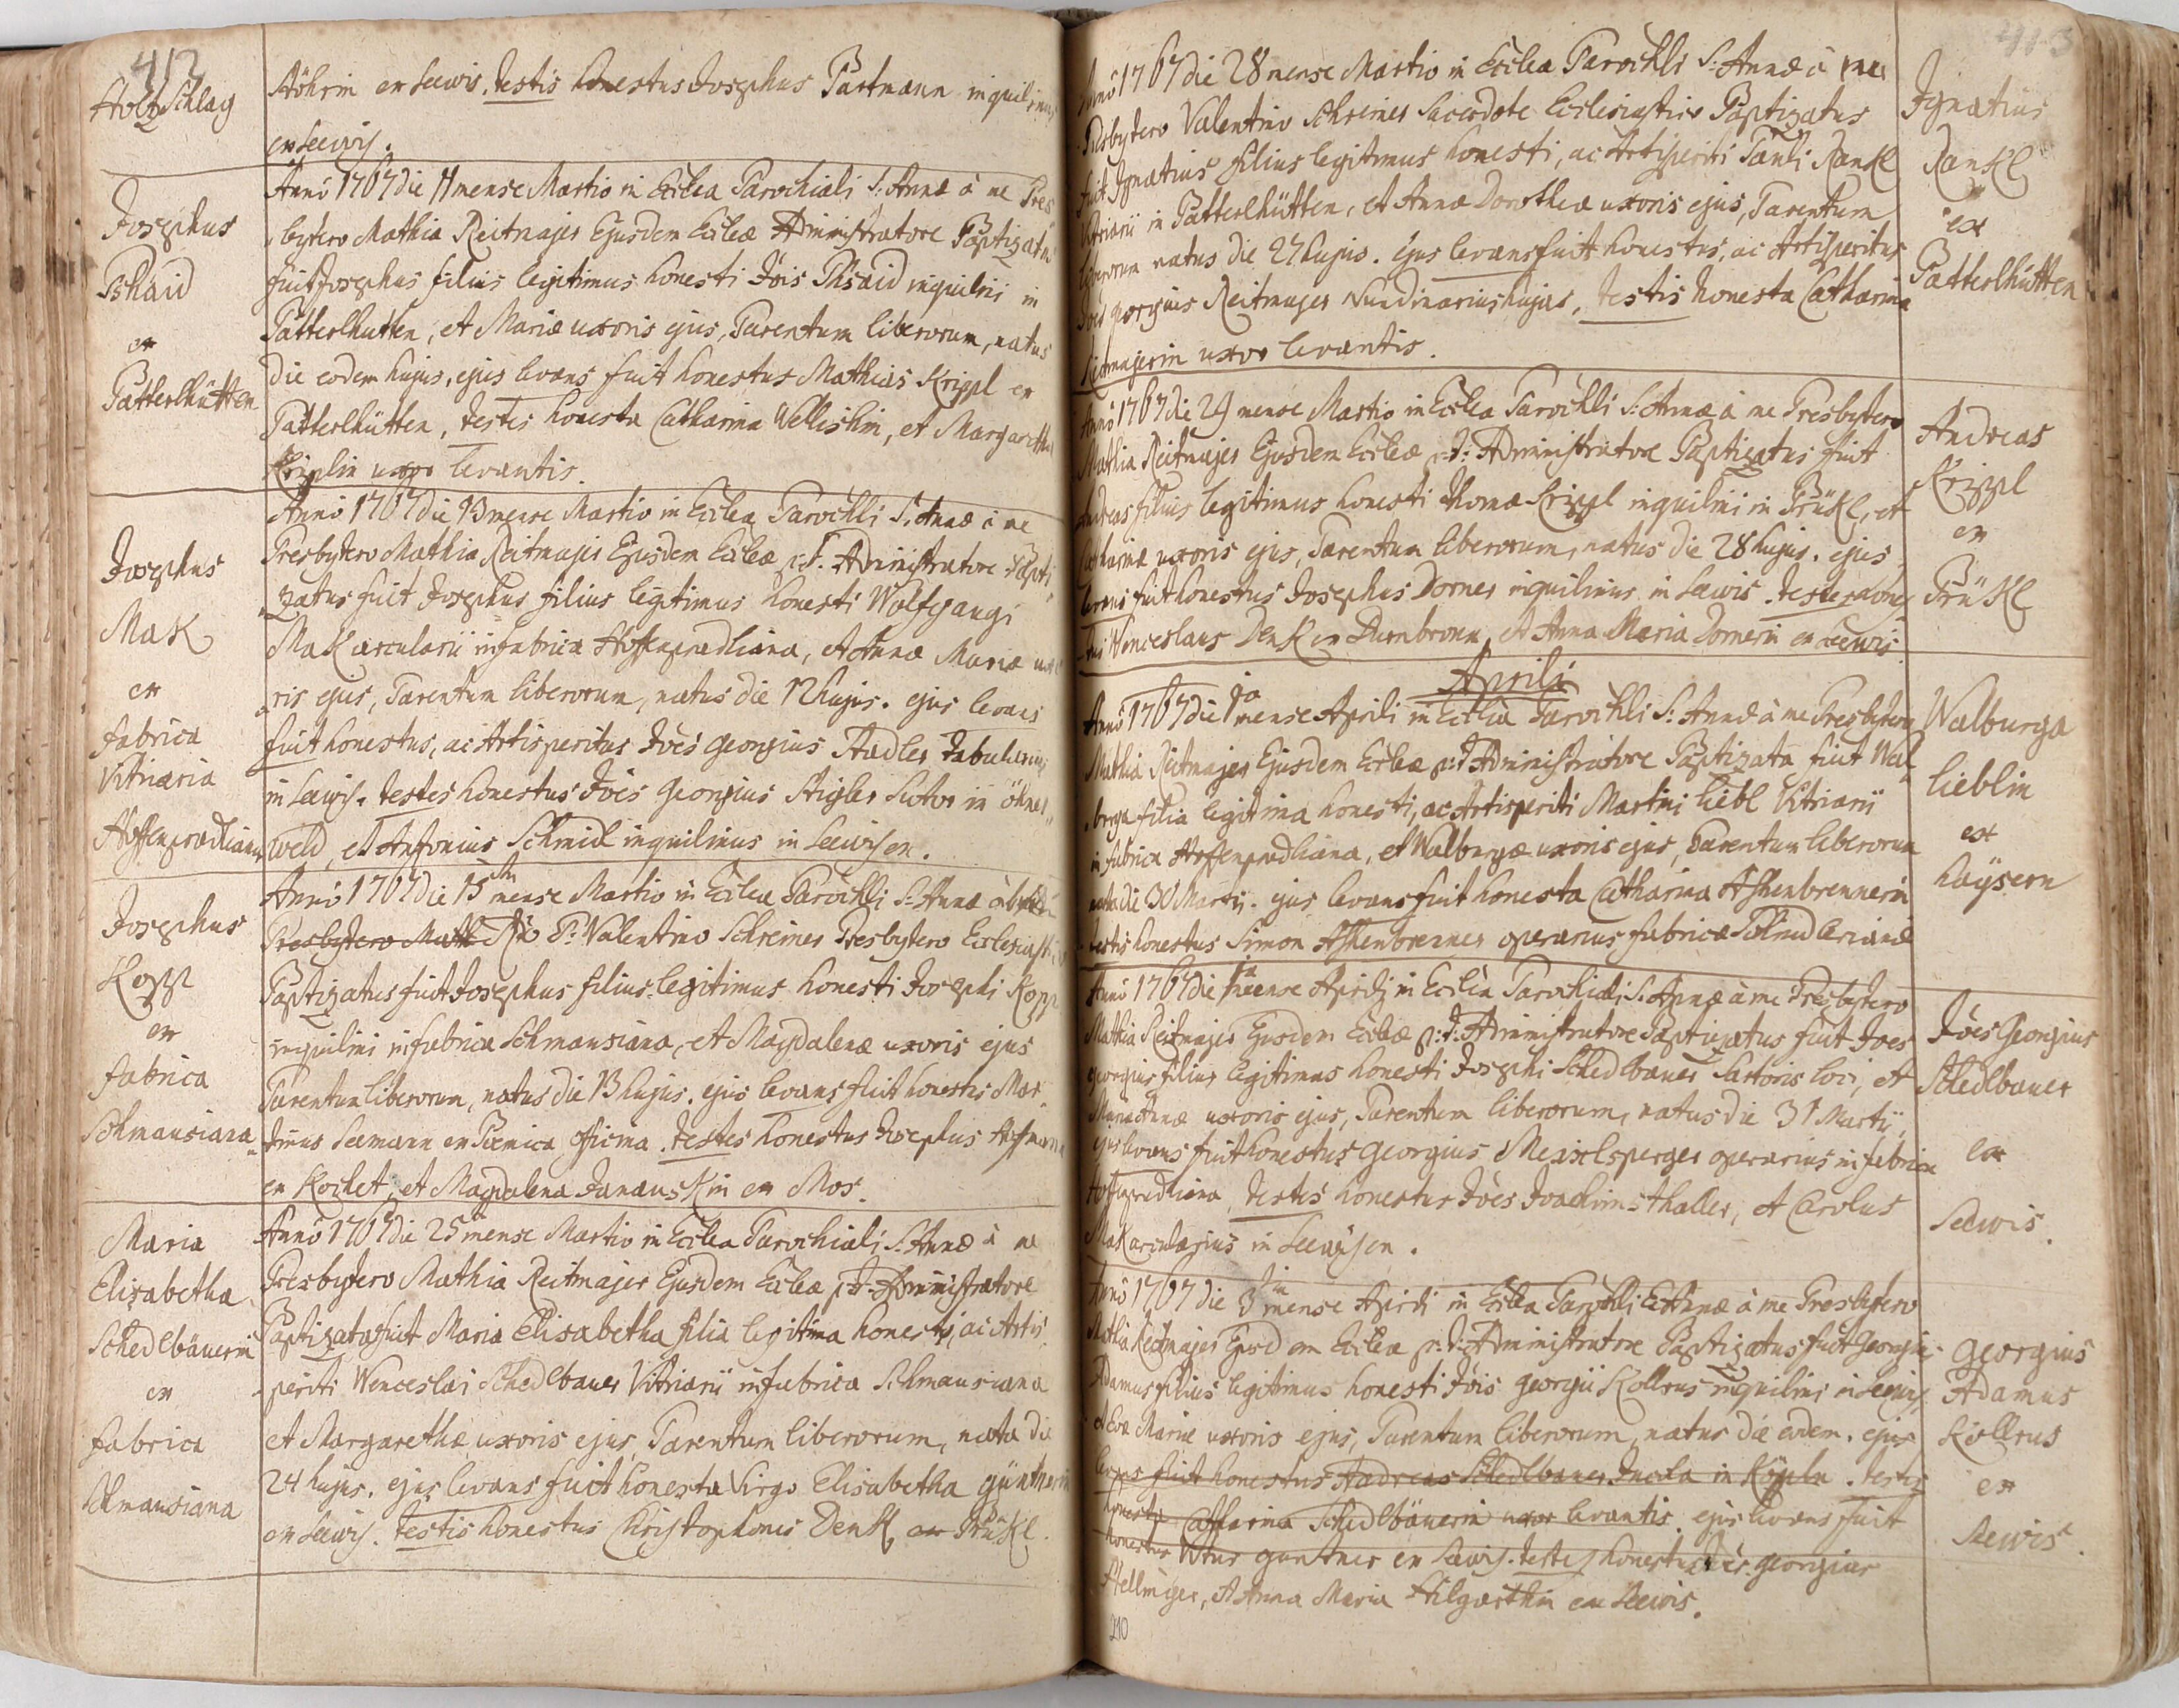 412
Holtz Schlag
Stöhrin ex Seewis. testis honestus Josephus Partmann inquilinus
ex Seewis.
Josephus
Pshaid
ex
Patterlhütten
Anno 1767 die 11 mense Martio in Ecclea Parochiali S: Annæ à me Pres
bytero Mathia Reitmajer Ejusdem Eccleæ Administratore Baptizatus
fuit Josephus filius legitimus honesti Jois Pshaid inquilini in
Patterlhutten, et Mariæ uxoris ejus, Parentum liberorum, natus
die eodem hujus, ejus levans fuit honestus Mathias Krippl ex
Patterlhütten, testes honesta Catharina Wellishin, et Margaretha
Kripplin uxor levantis.
Josephus
Mak
ex
fabrica
Vitriaria
Hoffenprædliana
Anno 1767 die 13 mense Martio in Ecclea Parochli S: Annæ à me
Presbytero Mathia Reitmajer Ejusdem Eccleæ p:t: Administratore Bapti
zatus fuit Josephus filius legitimus honesti Wolfgangi
Mak arcularii in fabrica Hoffenprædliana, et Annæ Mariæ uxo
ris ejus, Parentum liberorum, natus die 12 hujus. ejus levans
fuit honestus, ac Artisperitus Joes Georgius Stadler tabularius
in Seewis. testes honestus Joes Georgius Stigler Sutor in
weld, et Antonius Schmid inquilinus in Seewisen.
Josephus
Kopp
ex
fabrica
Schmausiana
Anno 1767 die 15 mense Martio in Ecclea Parochli S: Annæ
Presbytero Math P: Valentino Schreiner Presbytero Ecclesiastico
Baptizatus fuit Josephus filius legitimus honesti Josephi Kopp
inquilini in fabrica Schmausiana, et Magdalenæ uxoris ejus
Parentum liberorum, natus die 13 hujus. ejus levans fuit honestus Mar
tinus Seemann ex Boemica officina. testes honestus Josephus Hoffmann
ex Kochet, et Magdalena Janauskin ex Mos.
Maria
Elisabetha
Schedlbäuerin
ex
fabrica
Schmausiana
Anno 1767 die 25 mense Martio in Ecclea Parochiali S: Annæ à me
Presbytero Mathia Reitmajer Ejusdem Eccleæ p:t: Administratore
Baptizata fuit Maria Elisabetha filia legitima honesti, ac Artis
periti Wenceslai Schedlbauer Vitriarii in fabrica Schmausiana
et Margarethæ uxoris ejus, Parentum liberorum, nata die
24 hujus. ejus levans fuit honesta Virgo Elisabetha Güntnerin
ex Seewis. testis honestus Christophorus Denk ex Prükl.
413
Anno 1767 die 28 mense Martio in Ecclea Parochli S: Annæ à
Presbytero Valentino Schreiner Sacerdote Ecclesiastico Baptizatus
fuit Ignatius filius legitimus honesti, ac Artisperiti Pauli Rankl
Vitriarii in Patterlhütten, et Annæ Dorotheæ uxoris ejus, Parentum
liberorum natus die 27 hujus. ejus levans fuit honestus, ac Artisperitus
Joes Georgius Reitmajer Nundinarius hujas, testis honesta Catharina
Reitmajerin uxor levantis.
Ignatius
Rankl
ex
Patterlhütten
Anno 1767 die 29 mense Martio in Ecclea Parochli S: Annæ à me Presbytero
Mathia Reitmajer Ejusdem Eccleæ p:t: Administratore Baptizatus fuit
Andreas filius legitimus honesti Thomæ Krippl inquilini in Prükl, et
Catharinæ uxoris ejus, Parentum liberorum, natus die 28 hujus. ejus
levans fuit honestus Josephus Dorner inquilinus in Seewis. testes hones
tus Wenceslaus Denk ex Durnbronn, et Anna Maria Dornerin ex Seewis.
Andreas
Krippl
ex
Prükl
Aprili
Anno 1767 die 1ma mense Aprili in Ecclea Parochli S: Annæ à me Presbytero
Mathia Reitmajer Ejusdem Eccleæ p:t: Administratore Baptizata fuit Wal
burga filia legitima honesti, ac Artisperiti Martini Liebl Vitriarii
in fabrica Hoffenprædliana, et Walburgæ uxoris ejus, Parentum liberorum
nata die 30 Martii. ejus levans fuit honesta Catharina Ashenbrennerin
testis honestus Simon Ashenbrenner operarius fabricæ
Walburga
Lieblin
ex
Haÿsern
Anno 1767 die 1ma mense Aprili in Ecclea Parochiali S: Annæ à me Presbytero
Mathia Reitmajer Ejusdem Eccleæ p:t: Administratore Baptizatus fuit Joes
Georgius filius legitimus honesti Josephi Schedlbauer Sartoris loci, et
Mariæ Annæ uxoris ejus, Parentum liberorum, natus die 31 Martii,
ejus levans fuit honestus Georgius Meixelsperger operarius in fabrica
Hoffenprædliana, testes honestus Joes Joachimsthaller, et Carolus
Mak arcularius in Seewisen.
Joes Georgius
Schedlbauer
ex
Seewis.
Anno 1767 die 3 mense Aprili in Ecclea Parochli S: Annæ à me Presbytero
Mathia Reitmajer Ejusdem Eccleæ p:t: Administratore Baptizatus fuit Georgius
Adamus filius legitimus honesti Jois Georgii Kollrus inquilini in Seewis,
et Evæ Mariæ uxoris ejus, Parentum liberorum, natus die eodem. ejus
levans fuit honestus Andreas Schedlbauer Incola in Köppln. testis
honesta Catharina Schedlbäuerin uxor levantis. ejus levans fuit
honestus Vitus Guntner ex Seewis. testes honestus Joes Georgius
Stellinger, et Anna Maria Hilgarthin ex Seewis.
Georgius
Adamus
Kollrus
ex
Seewis.
210